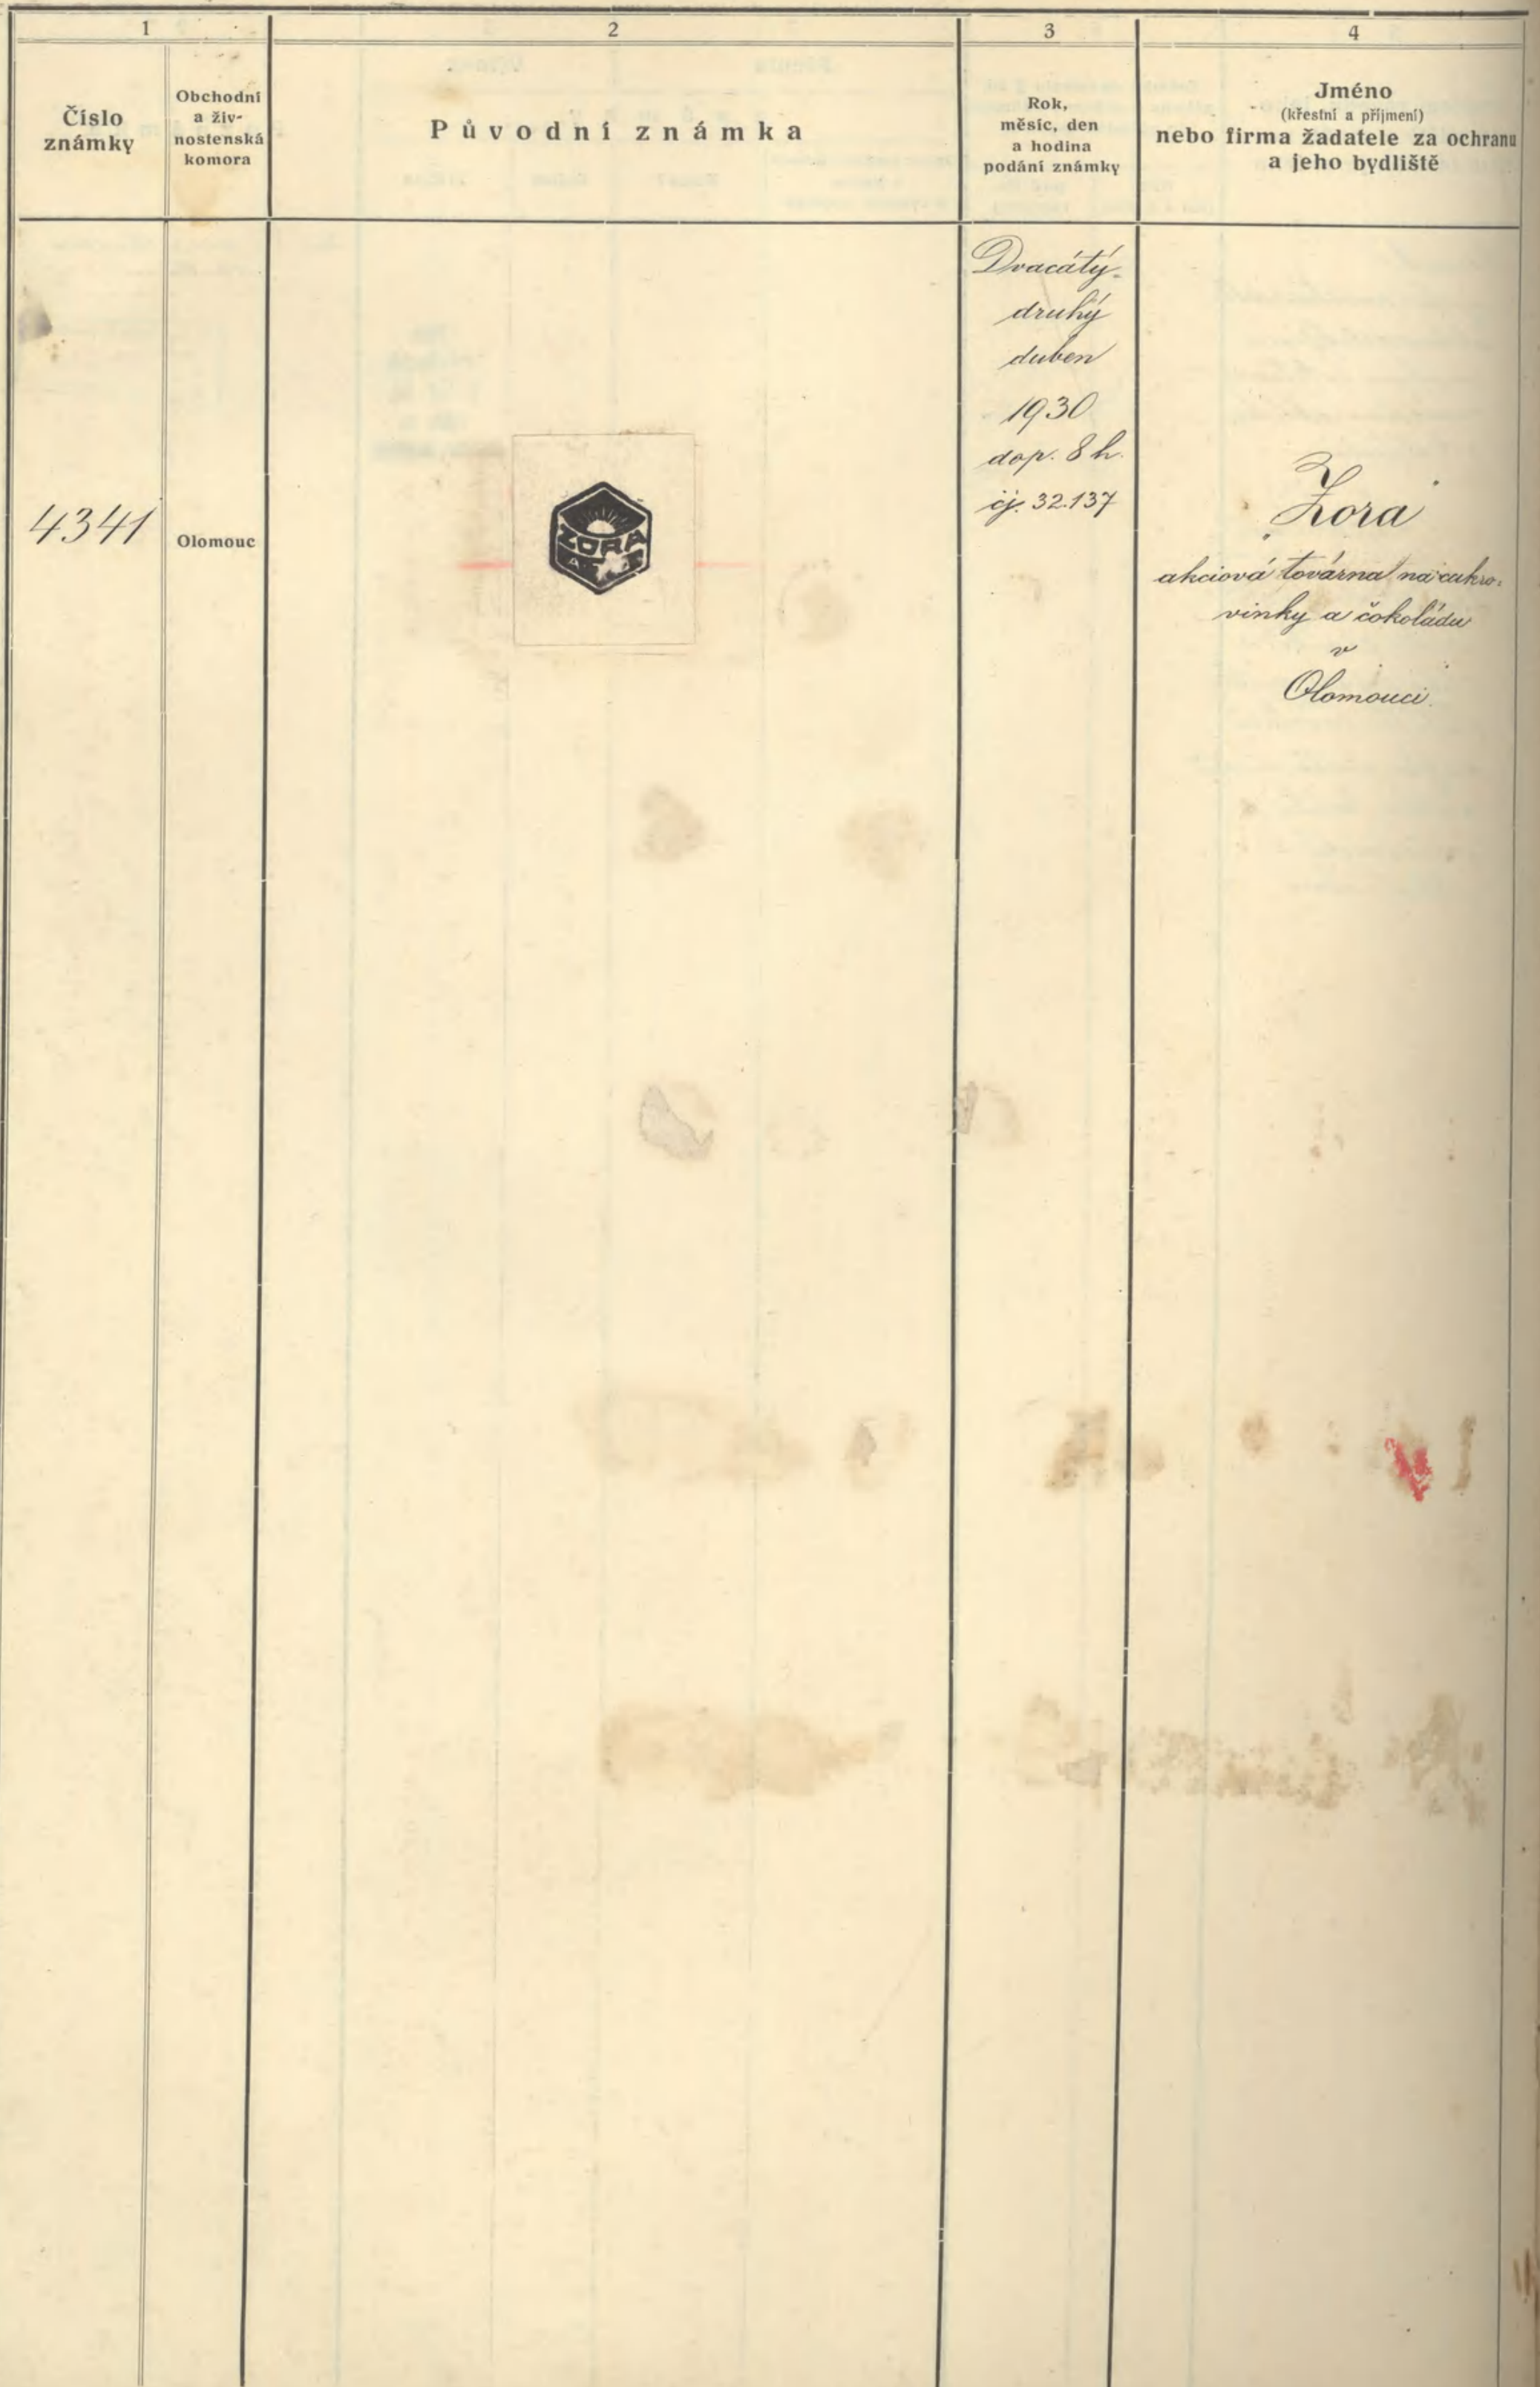 1
2
3
4
Číslo
známky
Obchodní
a živ-
nostenská
komora
Původní známka
Rok,
měsíc, den
a hodina
podání známky
Jméno
(křestní a příjmení)
nebo firma žadatele za ochranu
a jeho bydliště
4341
Olomouc
ZORA
Dvacátý-
druhý
duben
1930
dop. 8 h.
čj. 32.137
„Zora“
akciová továrna na cukro-
vinky a čokoládu
v
Olomouci.